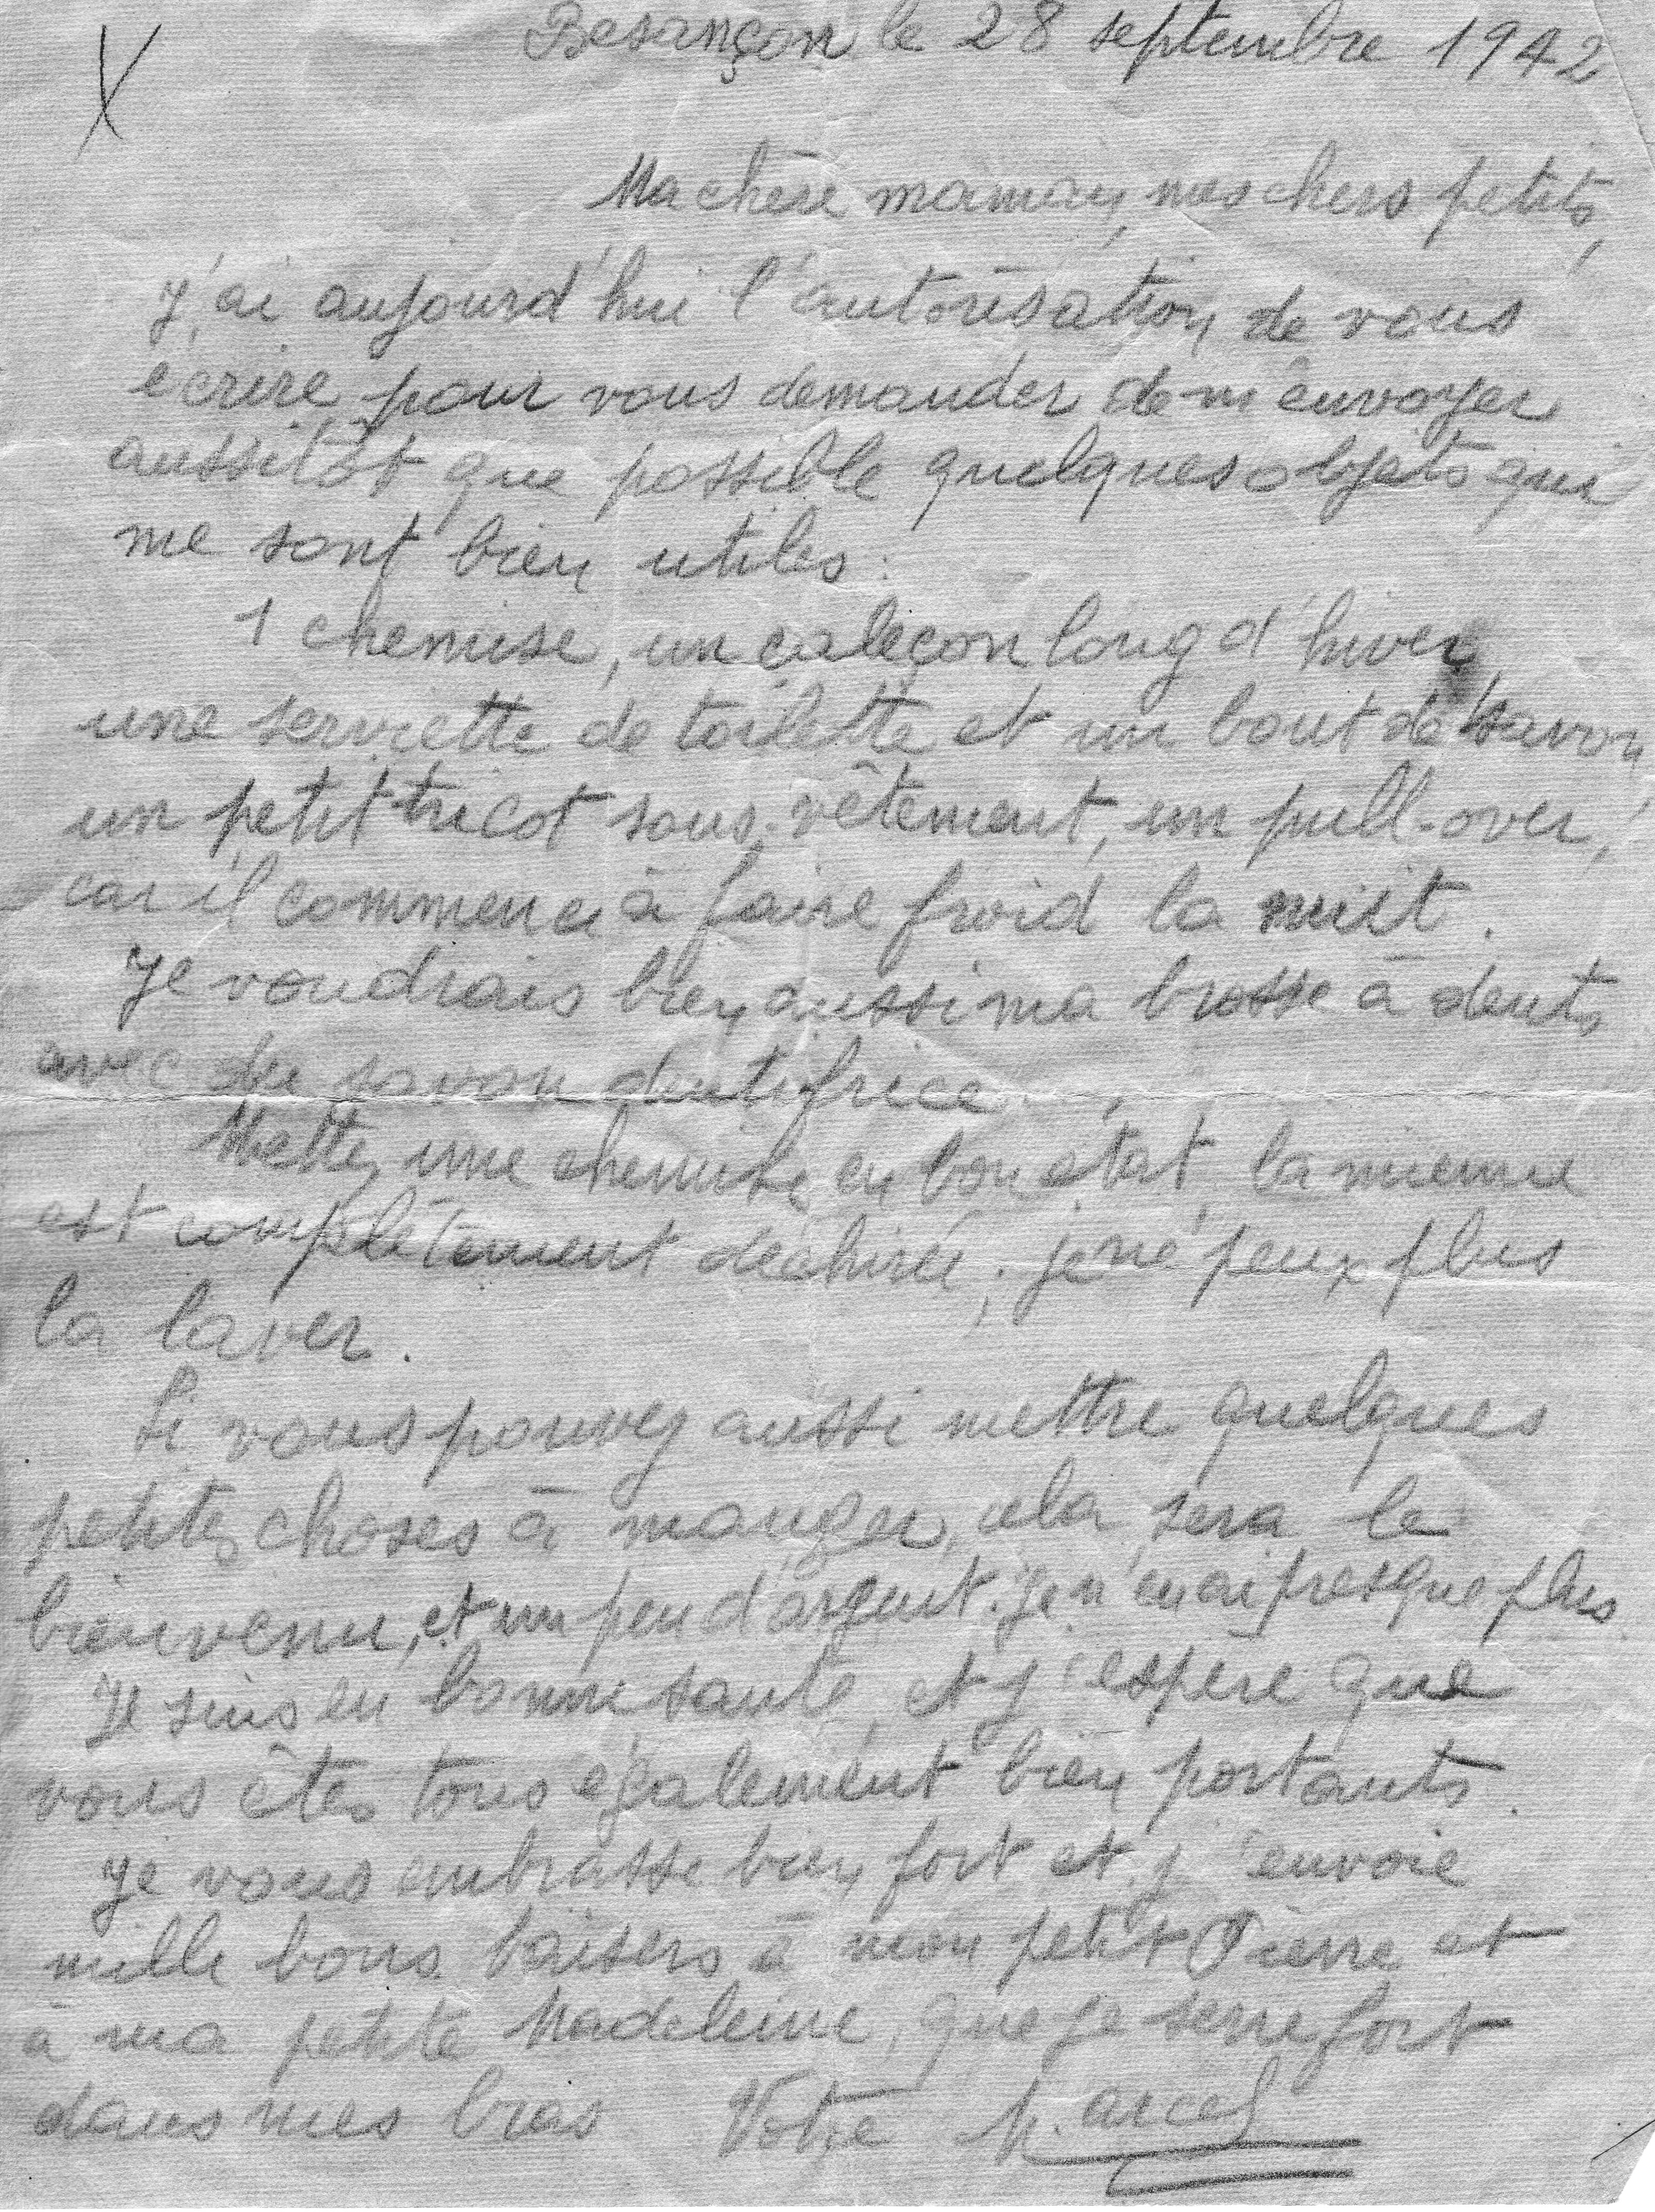 Besançon le 28 septembre 1942
Ma chère maman, mes chers petits,
J'ai aujourd'hui l'autorisation de vous
écrire pour vous demander de m'envoyer
aussitôt que possible quelques objets qui
me sont bien utiles :
1 chemise, un caleçon long d'hiver,
une serviette de toilette et un bout de savon,
un petit tricot sous-vêtement, un pull-over,
car il commence à faire froid la nuit.
Je voudrais bien aussi ma brosse à dents
avec du savon dentifrice.
Mettez une chemise en bon état, la mienne
est complètement déchirée ; je ne peux plus
la laver.
Si vous pouvez aussi mettre quelques
petites choses à manger, cela sera le
bienvenu, et un peu d'argent. Je n'en ai presque plus.
Je suis en bonne santé, et j'espère que
vous êtes tous également bien portants.
Je vous embrasse bien fort et j'envoie
mille bons baisers à mon petit Pierre et
à ma petite Madeleine, que je serre fort
dans mes bras Votre Marcel